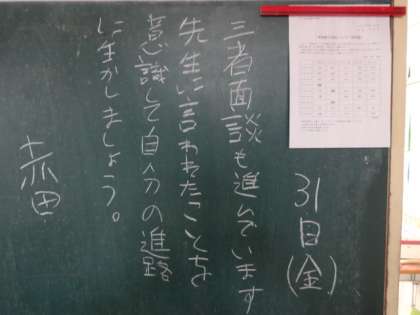 31日(金)
三者面談も進んでいます
先生に言われたことを
意識して自分の進路
に生かしましょう。
赤田